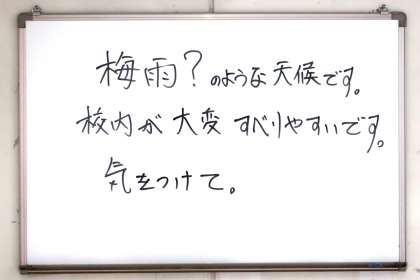 梅雨？のような天候です。
校内が大変すべりやすいです。
気をつけて。